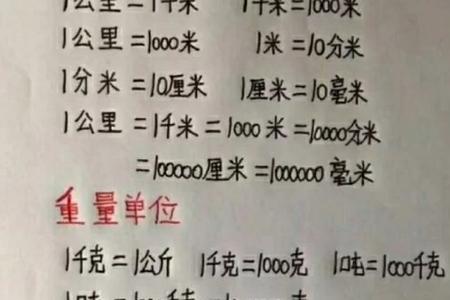 1公里=1千米 1千米=1000米
1公里=1000米 1米=10分米
1分米=10厘米 1厘米=10毫米
1公里=1千米=1000米=10000分米
=100000厘米=1000000毫米
重量单位
1千克=1公斤 1千克=1000克 1吨=1000千克